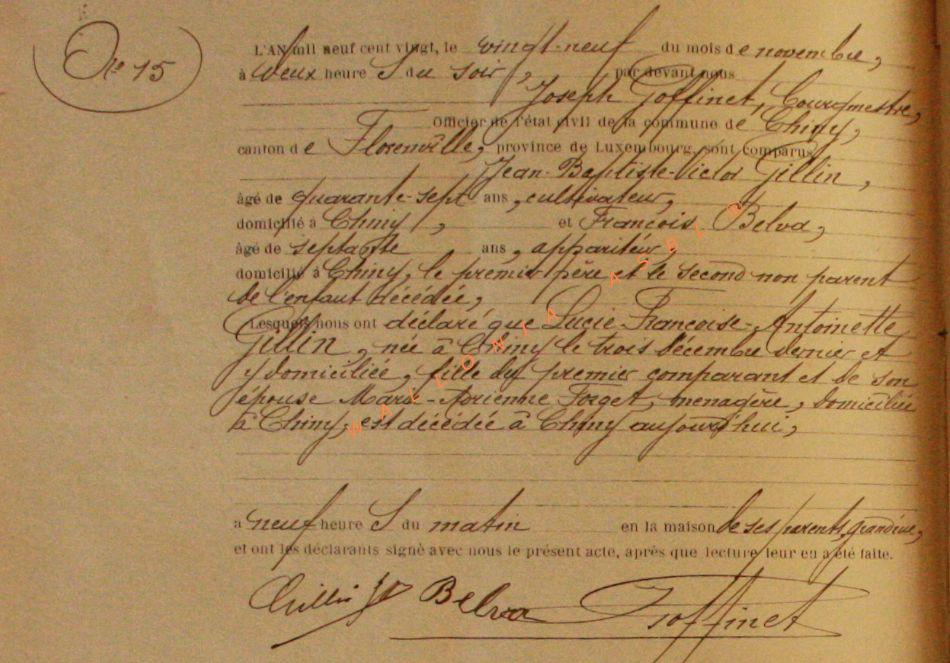 No 15
L'AN mil neuf cent vingt, le vingt-neuf du mois de novembre,
à deux heure S du soir, par devant nous
Joseph Goffinet, Bourgmestre,
Officier de l'état civil de la commune de Chiny,
canton de Florenville, province de Luxembourg, sont comparus
Jean-Baptiste-Victor Gillin,
âgé de quarante-sept ans, cultivateur,
domicilié à Chiny, et François Belva,
âgé de septante ans, appariteur,
domicilié à Chiny, le premier père et le second non parent
de l'enfant décédée,
Lesquels nous ont déclaré que Lucie-Françoise-Antoinette
Gillin, née à Chiny le trois décembre dernier et
y domiciliée, fille du premier comparant et de son
épouse Marie-Adrienne Forget, ménagère, domiciliée
à Chiny, est décédée à Chiny aujourd'hui,
a neuf heure S du matin en la maison de ses parents, grand'rue,
et ont les déclarants signé avec nous le présent acte, après que lecture leur en a été faite.
Gillin JV Belva Goffinet